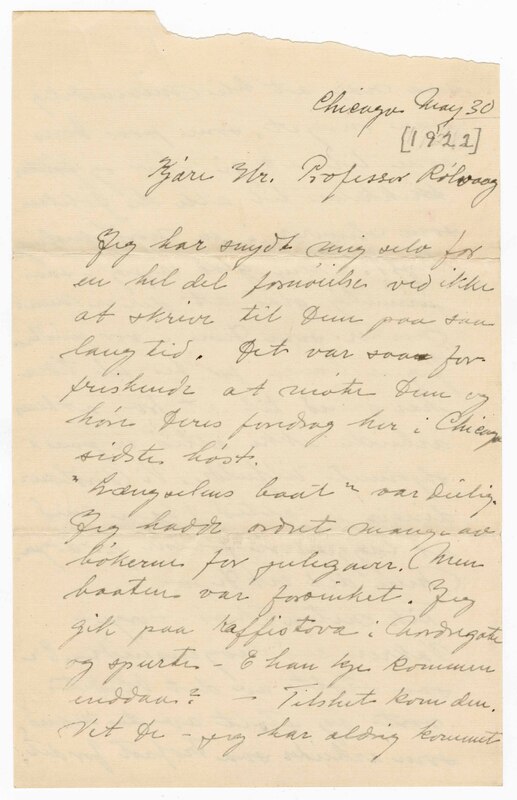 Chicago May 30
[1922]
Kjäre Hr. Professor Rölvaag
Jeg har snydt mig selv for
en hel del fornöielse ved ikke
at skrive til Dem paa saa
lang tid. Det var saa for
friskende at möte Dem og
höre Deres foredrag her i Chicago
sidste höst.
"Længselens baat" var deilig.
Jeg hadde ordret mange av
bökerne for julegaver. Men
baaten var forsinket. Jeg
gik paa Kaffistova i Nordregate
og spurte - E han kje kommen
enddaa? - Tilslut kom den.
Vet De - jeg har aldrig kommet